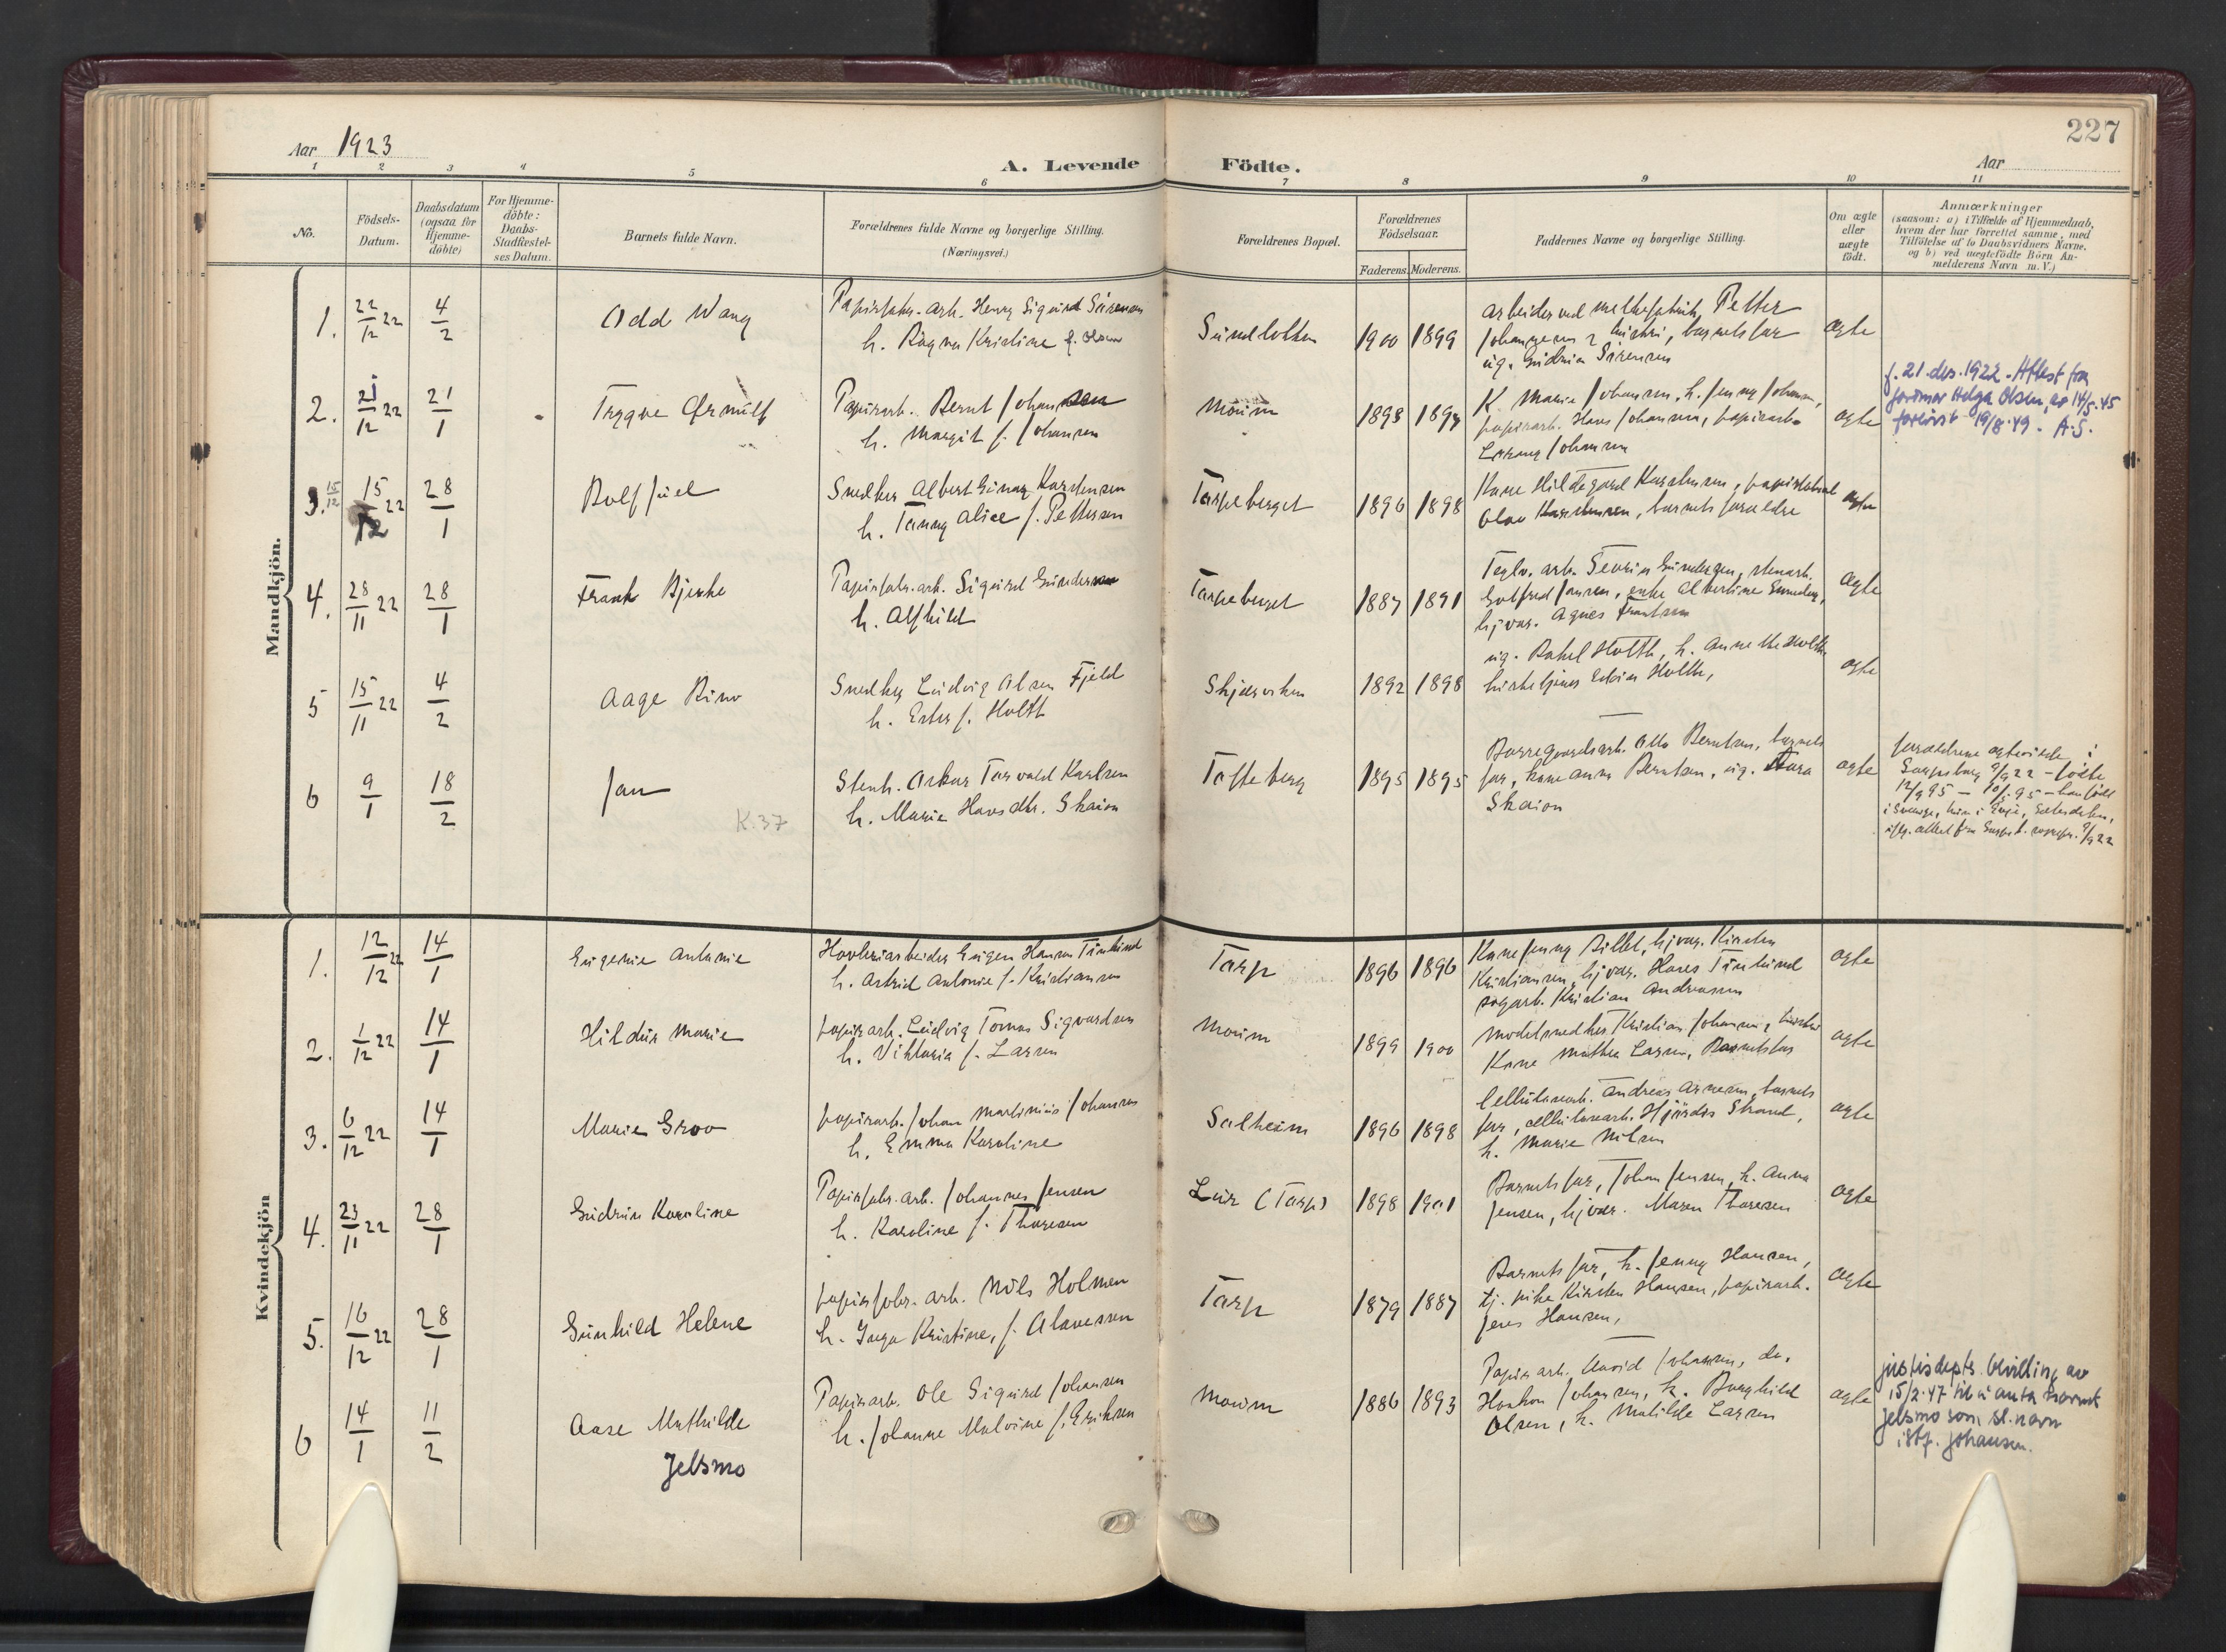 227
Aar 1923
A. Levende Födte.
Aar
1 2 3 4 5 6 7 8 9 10 11
No.
Födsels-
Datum.
Daabsdatum
(ogsaa for
Hjemme-
döbte)
For Hjemme-
döbte:
Daabs-
Stadfæstel-
ses Datum.
Barnets fulde Navn.
Forældrenes fulde Navne og borgerlige Stilling.
(Næringsvei.)
Forældrenes Bopæl.
Forældrenes
Födselsaar.
Faderens. Moderens.
Faddernes Navne og borgerlige Stilling.
Om ægte
eller
uægte
födt.
Anmærkninger
(saasom: a) i Tilfælde af Hjemmedaab,
hvem der har forrettet samme, med
Tilföielse af to Daabsvidners Navne,
og b) ved uægtefödte Börn An-
melderens Navn m. V.)
Mandkjön.
1. 22/12 22 4/2 Odd Wang
Papirfabr. arb. Henry Sigurd Sörensen
h. Ragna Kristine f. Olsen
1900 1899
arbeider ved Petter
barnets far
ug. Sörensen
ægte
2. 21/12 22 21/1 Trygve Arnulf
Papirarb. Bernt Johansen
h. Margit f. Johansen
Moum
1898
K. Marie Johansen, h. Jenny Johansen,
papirarb. Hans Johansen, papirarb.
Johansen
ægte
f. 21. des. 1922 - Attest fra
jormor Helga Olsen, av 14/5.45
forevist 19/8.49. A.S.
3. 15/12 15/12 22 28/1 Rolf Juel
Snedker Albert Gunar Karstensen
h. Fanny Alice f. Pettersen
Tarpeberget
1896 1898
Kone Hildegard Karstensen,
Olav Karstensen, barnets foreldre
ægte
4. 28/11 22 28/1 Frank Bjerke
Papirfabr. arb. Sigurd Gundersen
h. Alfhild
Tarpeberget
1887 1891
Teglv. arb. Severin Gundersen, stenarb.
Gotfred Jansen, enke Albertine Gundersen,
hjvær. Agnes Frantsen
ægte
5 15/11 22 4/2 Aage Rino
Snedker Ludvig Olsen Fjeld
h. Ester f. Holth
Skjærviken
1892 1898
ug. Rakel Holth, h. Anne Holth
Holth,
ægte
6 9/1 18/2 Jan
K. 37
Stenh. Oskar Torvald Karlsen
h. Marie Hansdtr. Skaion
Tofteberg
1895 1895
Borregaardsarb. Otto Berntsen, barnets
far, kone Anna Berntsen, ug. Aara
Skaion
ægte
forældrene ægteviede i
Sarpsborg 9/9 22 - födte
12/9 95 - 10/5 95 - han född
i Sverige, hun i Evje, Sætersdalen,
Kvindekjön
1. 12/12 22 14/1 Eugenie Antonie
Høvleriarbeider Eugen Hansen
h. Astrid Antonie f. Kristiansen
Tarp
1896 1896
Kone Jenny hjvær. Kirsten
Kristiansen, hjvær. Hans
sagarb. Kristian Andreassen
ægte
2. 1/12 22 14/1 Hildur Marie
papirarb. Ludvig Tomas Sigvardsen
h. Viktoria f. Larsen
Moum
1899 1900
Modelsnedker Kristian Johansen,
Kone Mathea Larsen, Barnets far
ægte
3. 6/12 22 14/1 Marie Groo
papirarb. Johan Martinius Johansen
h. Emma Karoline
Solheim
1896 1898
Cellulosearb. Andreas Arnesen, barnets
far, cellulosearb. Hjördis Strand,
h. Marie Nilsen
ægte
4. 23/11 22 28/1 Gudrun Karoline
Papirfabr. arb. Johannes Jensen
h. Karoline f. Thoresen
Lur (Tarp)
1898 1901
Barnets far, Johan Jensen, h. Anna
Jensen, hjvær. Maren Thoresen
ægte
5. 16/12 22 28/1 Gunhild Helene
papirfabr. arb. Nils Holmen
h. Inga Kristine, f. Olavesen
Tarp
1879 1887
Barnets far, h. Jenny Hansen,
tj. pike Kirsten Hansen, papirarb.
Jens Hansen,
ægte
6 14/1 11/2 Aase Mathilde
Jelsmo
Papirarb. Ole Sigurd Johansen
h. Johanne Malvine f. Eriksen
Moum
1886 1893
Papirarb. Arvid Johansen, do.
Haakon Johansen, h. Borghild
Olsen, h. Matilde Larsen
ægte
justisdepts. bevilling av
15/2.47 til å anta navnet
Jelsmo som sl.navn
istf. Johansen.